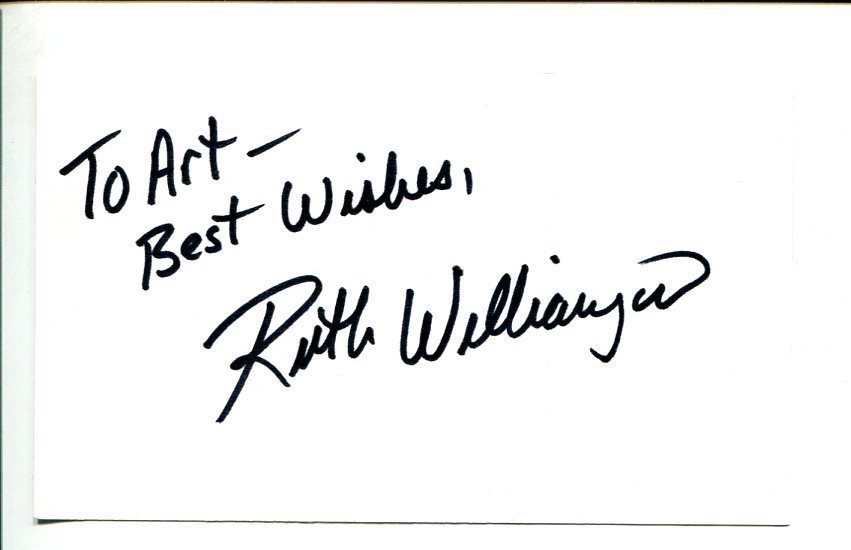 To Art –
Best Wishes,
Ruth Williamson